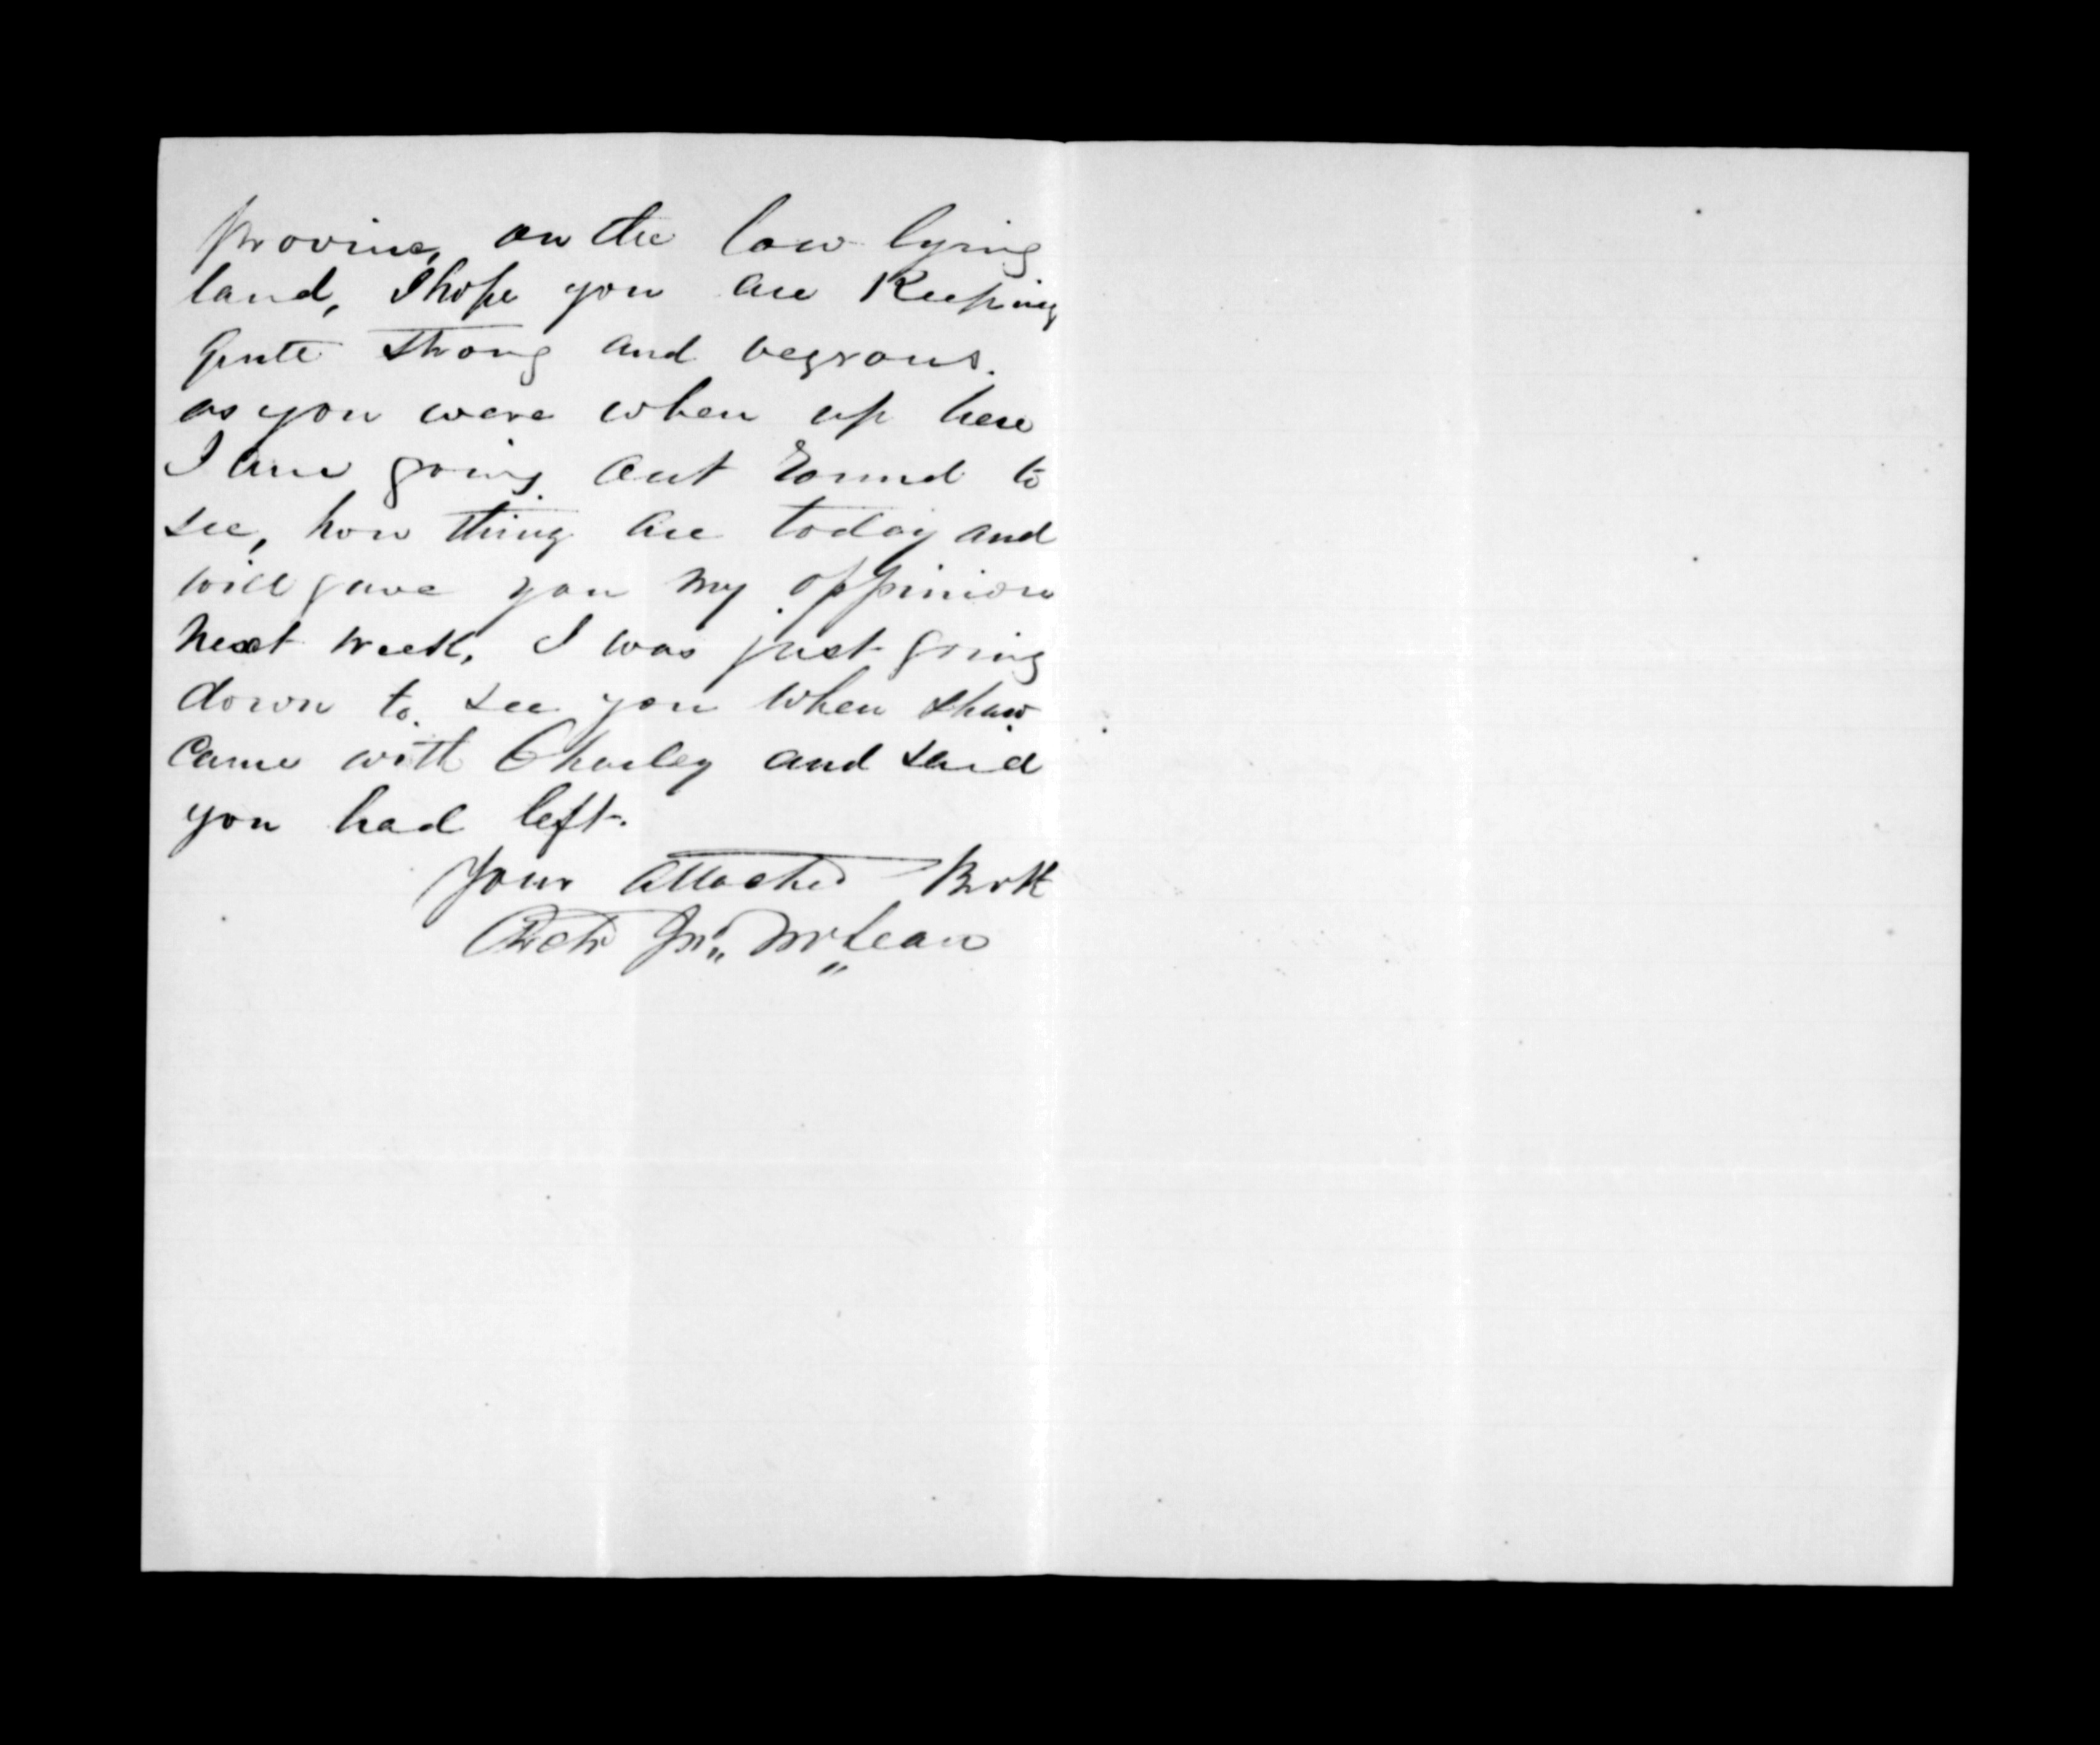 province, on the low lying
land, I hope you are Keeping
quite strong and vegrous.
as you were when up here
I am going out round to
see, how thing are today and
will gave you my oppinion
next week, I was just going
down to see you when Shaw
came with Charley and said
you had left.
Your attached Brot
Archd Jno McLean